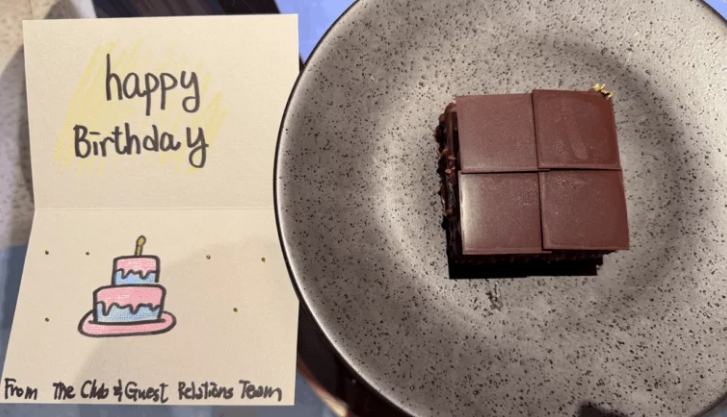 happy
Birthday
From The Club & Guest Relations Team